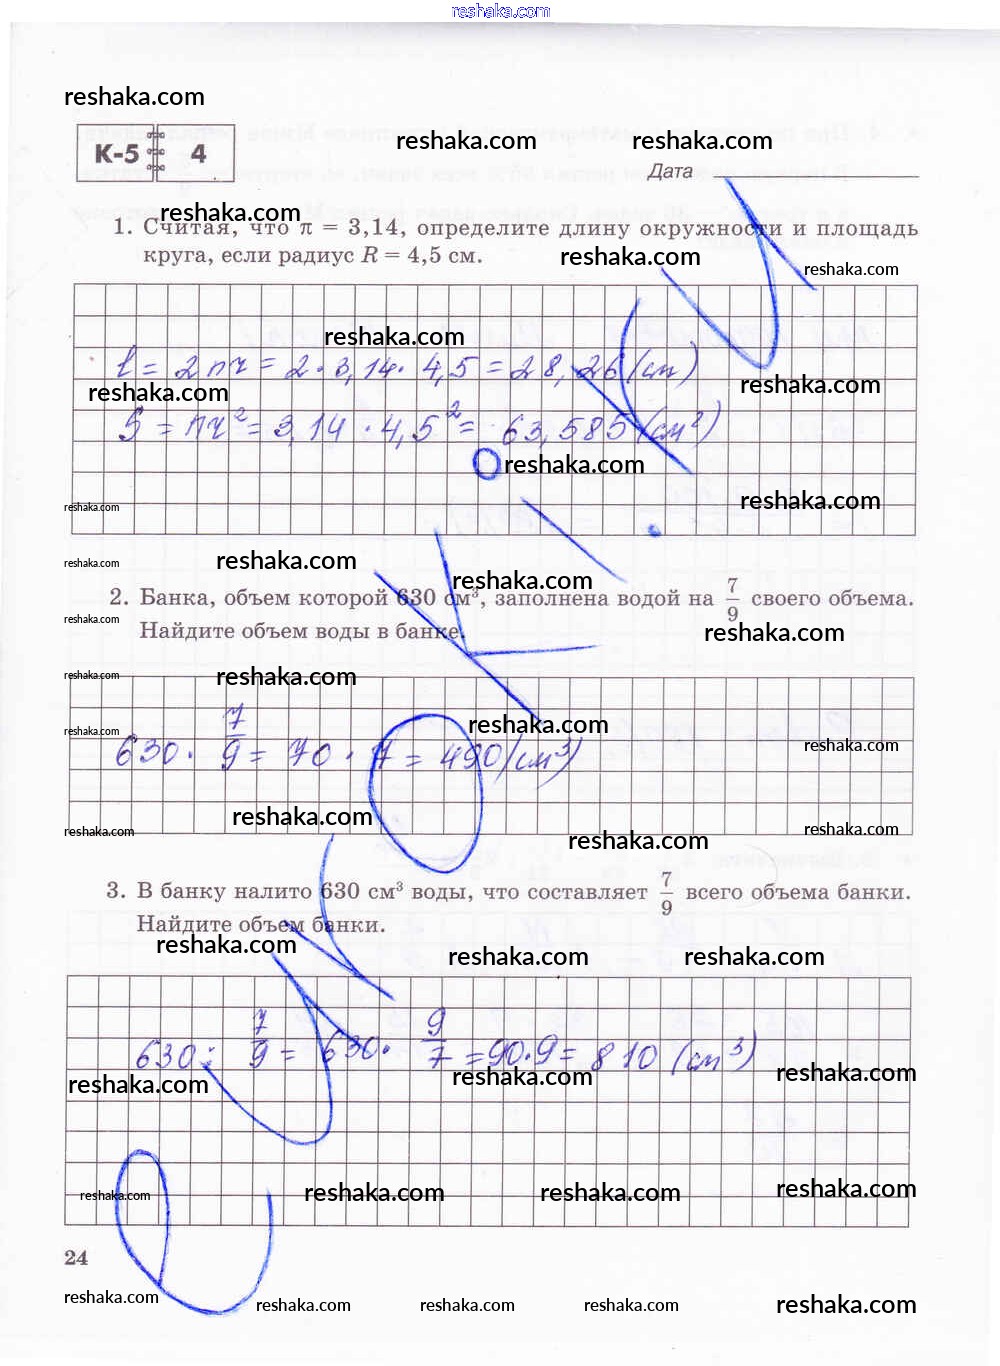 reshaka.com
reshaka.com
К-5 4
reshaka.com reshaka.com
Дата
reshaka.com
1. Считая, что π = 3,14, определите длину окружности и площадь
круга, если радиус R = 4,5 см.
reshaka.com reshaka.com
reshaka.com
ℓ = 2πr = 2 · 3,14 · 4,5 = 28,26 (см)
reshaka.com reshaka.com
S = πr² = 3,14 · 4,5² = 63,585 (см²)
reshaka.com
reshaka.com reshaka.com
reshaka.com reshaka.com
reshaka.com
2. Банка, объем которой 630 см³, заполнена водой на 7/9 своего объема.
reshaka.com
Найдите объем воды в банке.
reshaka.com
reshaka.com reshaka.com
reshaka.com reshaka.com reshaka.com
630 · 7/9 = 70 · 7 = 490 (см³)
reshaka.com
reshaka.com reshaka.com reshaka.com
3. В банку налито 630 см³ воды, что составляет 7/9 всего объема банки.
Найдите объем банки.
reshaka.com reshaka.com reshaka.com
630 : 7/9 = 630 · 9/7 = 90 · 9 = 810 (см³)
reshaka.com reshaka.com reshaka.com
reshaka.com reshaka.com reshaka.com reshaka.com
24
reshaka.com reshaka.com reshaka.com reshaka.com reshaka.com